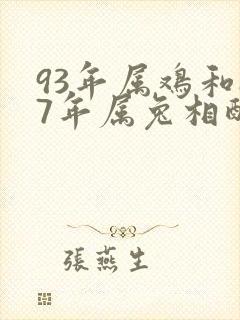 93年属鸡和
7年属兔相配
張燕生